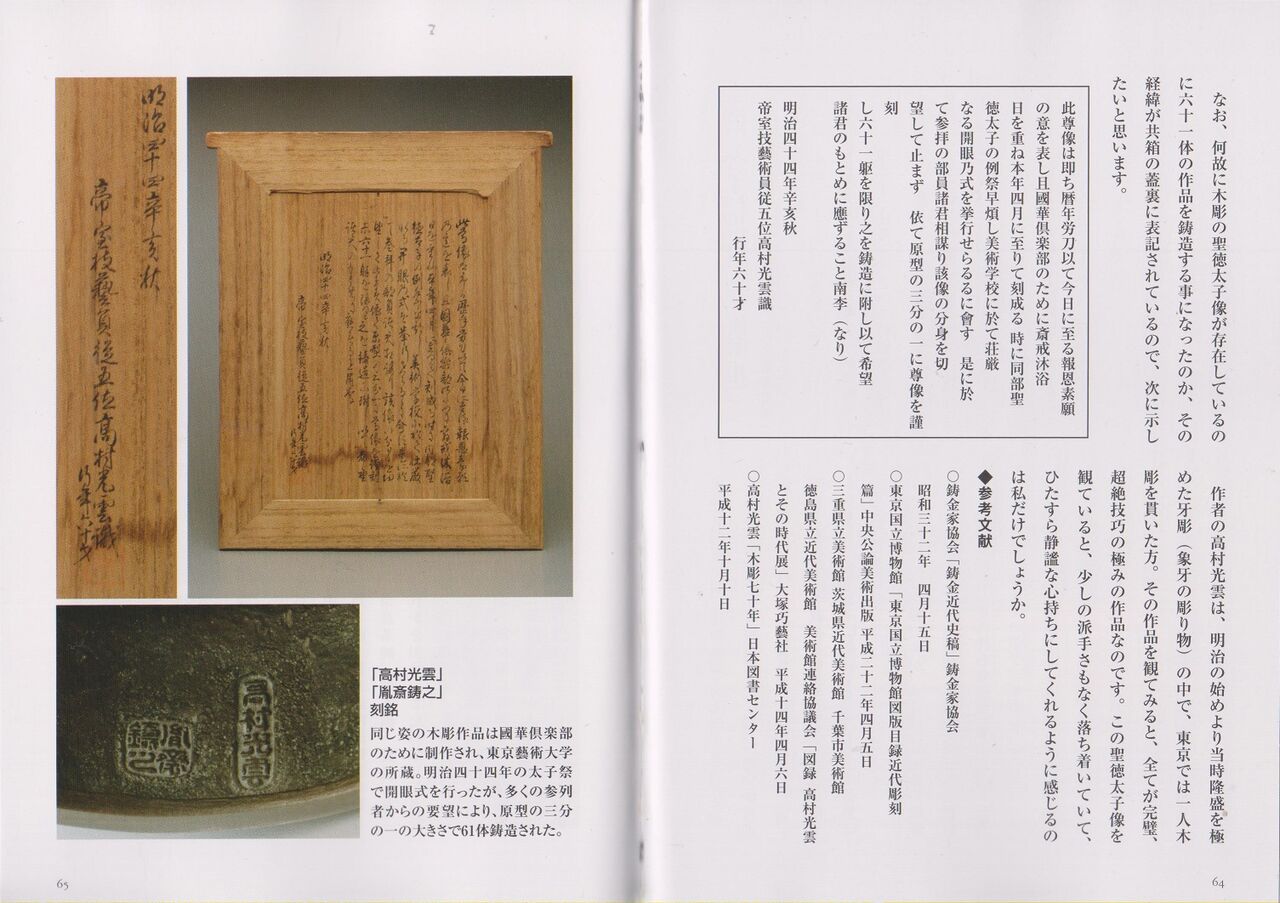 なお、何故に木彫の聖徳太子像が存在しているの
に六十一体の作品を鋳造する事になったのか、その
経緯が共箱の蓋裏に表記されているので、次に示し
たいと思います。
此尊像は即ち暦年労刀以て今日に至る報恩素願
の意を表し且國華倶楽部のために斎戒沐浴
日を重ね本年四月に至りて刻成る 時に同部聖
徳太子の例祭早煩し美術学校に於て荘厳
なる開眼乃式を挙行せらるるに會す 是に於
て参拝の部員諸君相謀り該像の分身を切
望して止まず 依て原型の三分の一に尊像を謹
刻
し六十一躯を限り之を鋳造に附し以て希望
諸君のもとめに應ずること南李（なり）
明治四十四年辛亥秋
帝室技藝術員従五位高村光雲識
行年六十才
作者の高村光雲は、明治の始めより当時隆盛を極
めた牙彫（象牙の彫り物）の中で、東京では一人木
彫を貫いた方。その作品を観てみると、全てが完璧、
超絶技巧の極みの作品なのです。この聖徳太子像を
観ていると、少しの派手さもなく落ち着いていて、
ひたすら静謐な心持ちにしてくれるように感じるの
は私だけでしょうか。
◆参考文献
○鋳金家協会「鋳金近代史稿」鋳金家協会
昭和三十二年 四月十五日
○東京国立博物館「東京国立博物館図版目録近代彫刻
篇」中央公論美術出版 平成二十二年四月五日
○三重県立美術館 茨城県近代美術館 千葉市美術館
徳島県立近代美術館 美術館連絡協議会「図録 高村光雲
とその時代展」大塚巧藝社 平成十四年四月六日
○高村光雲「木彫七十年」日本図書センター
平成十二年十月十日
64
明治四十四辛亥秋
帝室技藝員従五位高村光雲識
行年六十才
高村光雲
胤斎
鋳之
「高村光雲」
「胤斎鋳之」
刻銘
同じ姿の木彫作品は國華倶楽部
のために制作され、東京藝術大学
の所蔵。明治四十四年の太子祭
で開眼式を行ったが、多くの参列
者からの要望により、原型の三分
の一の大きさで61体鋳造された。
65